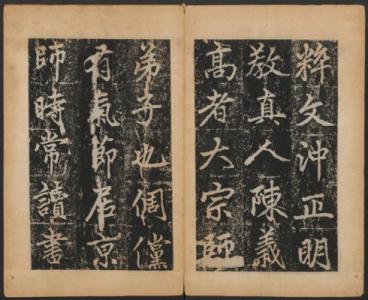 粹文沖正明
教真人陳義
高者大宗師
弟子也倜儻
有氣節居京
師時常讀書